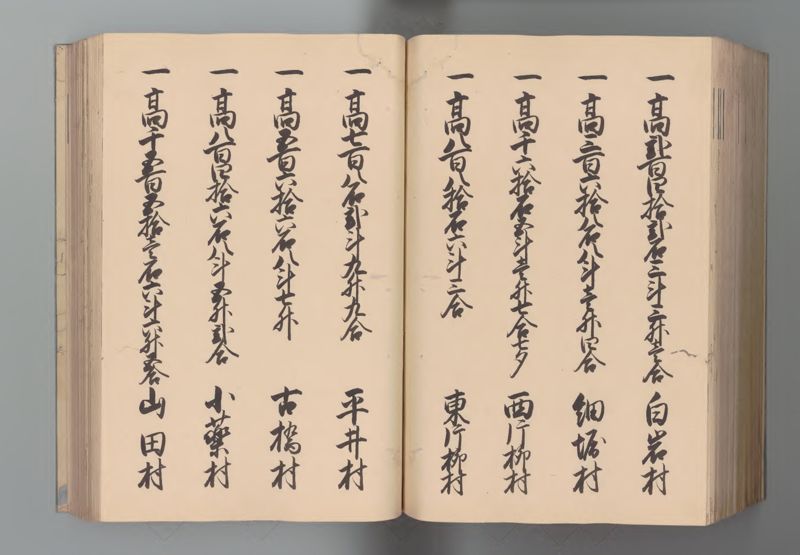 一 高弐百四拾弐石三斗三升壱合 白岩村
一 高三百六拾八石八斗壱升四合 細堀村
一 高千六拾石五斗壱升七合七夕 西片柳村
一 高八百八拾石六斗三合 東片柳村
一 高七百八石弐斗九升九合 平井村
一 高五百六拾六石八斗七升 古橋村
一 高八百四拾六石八斗五升弐合 小薬村
一 高千五百五拾壱石六斗六升五合 山田村